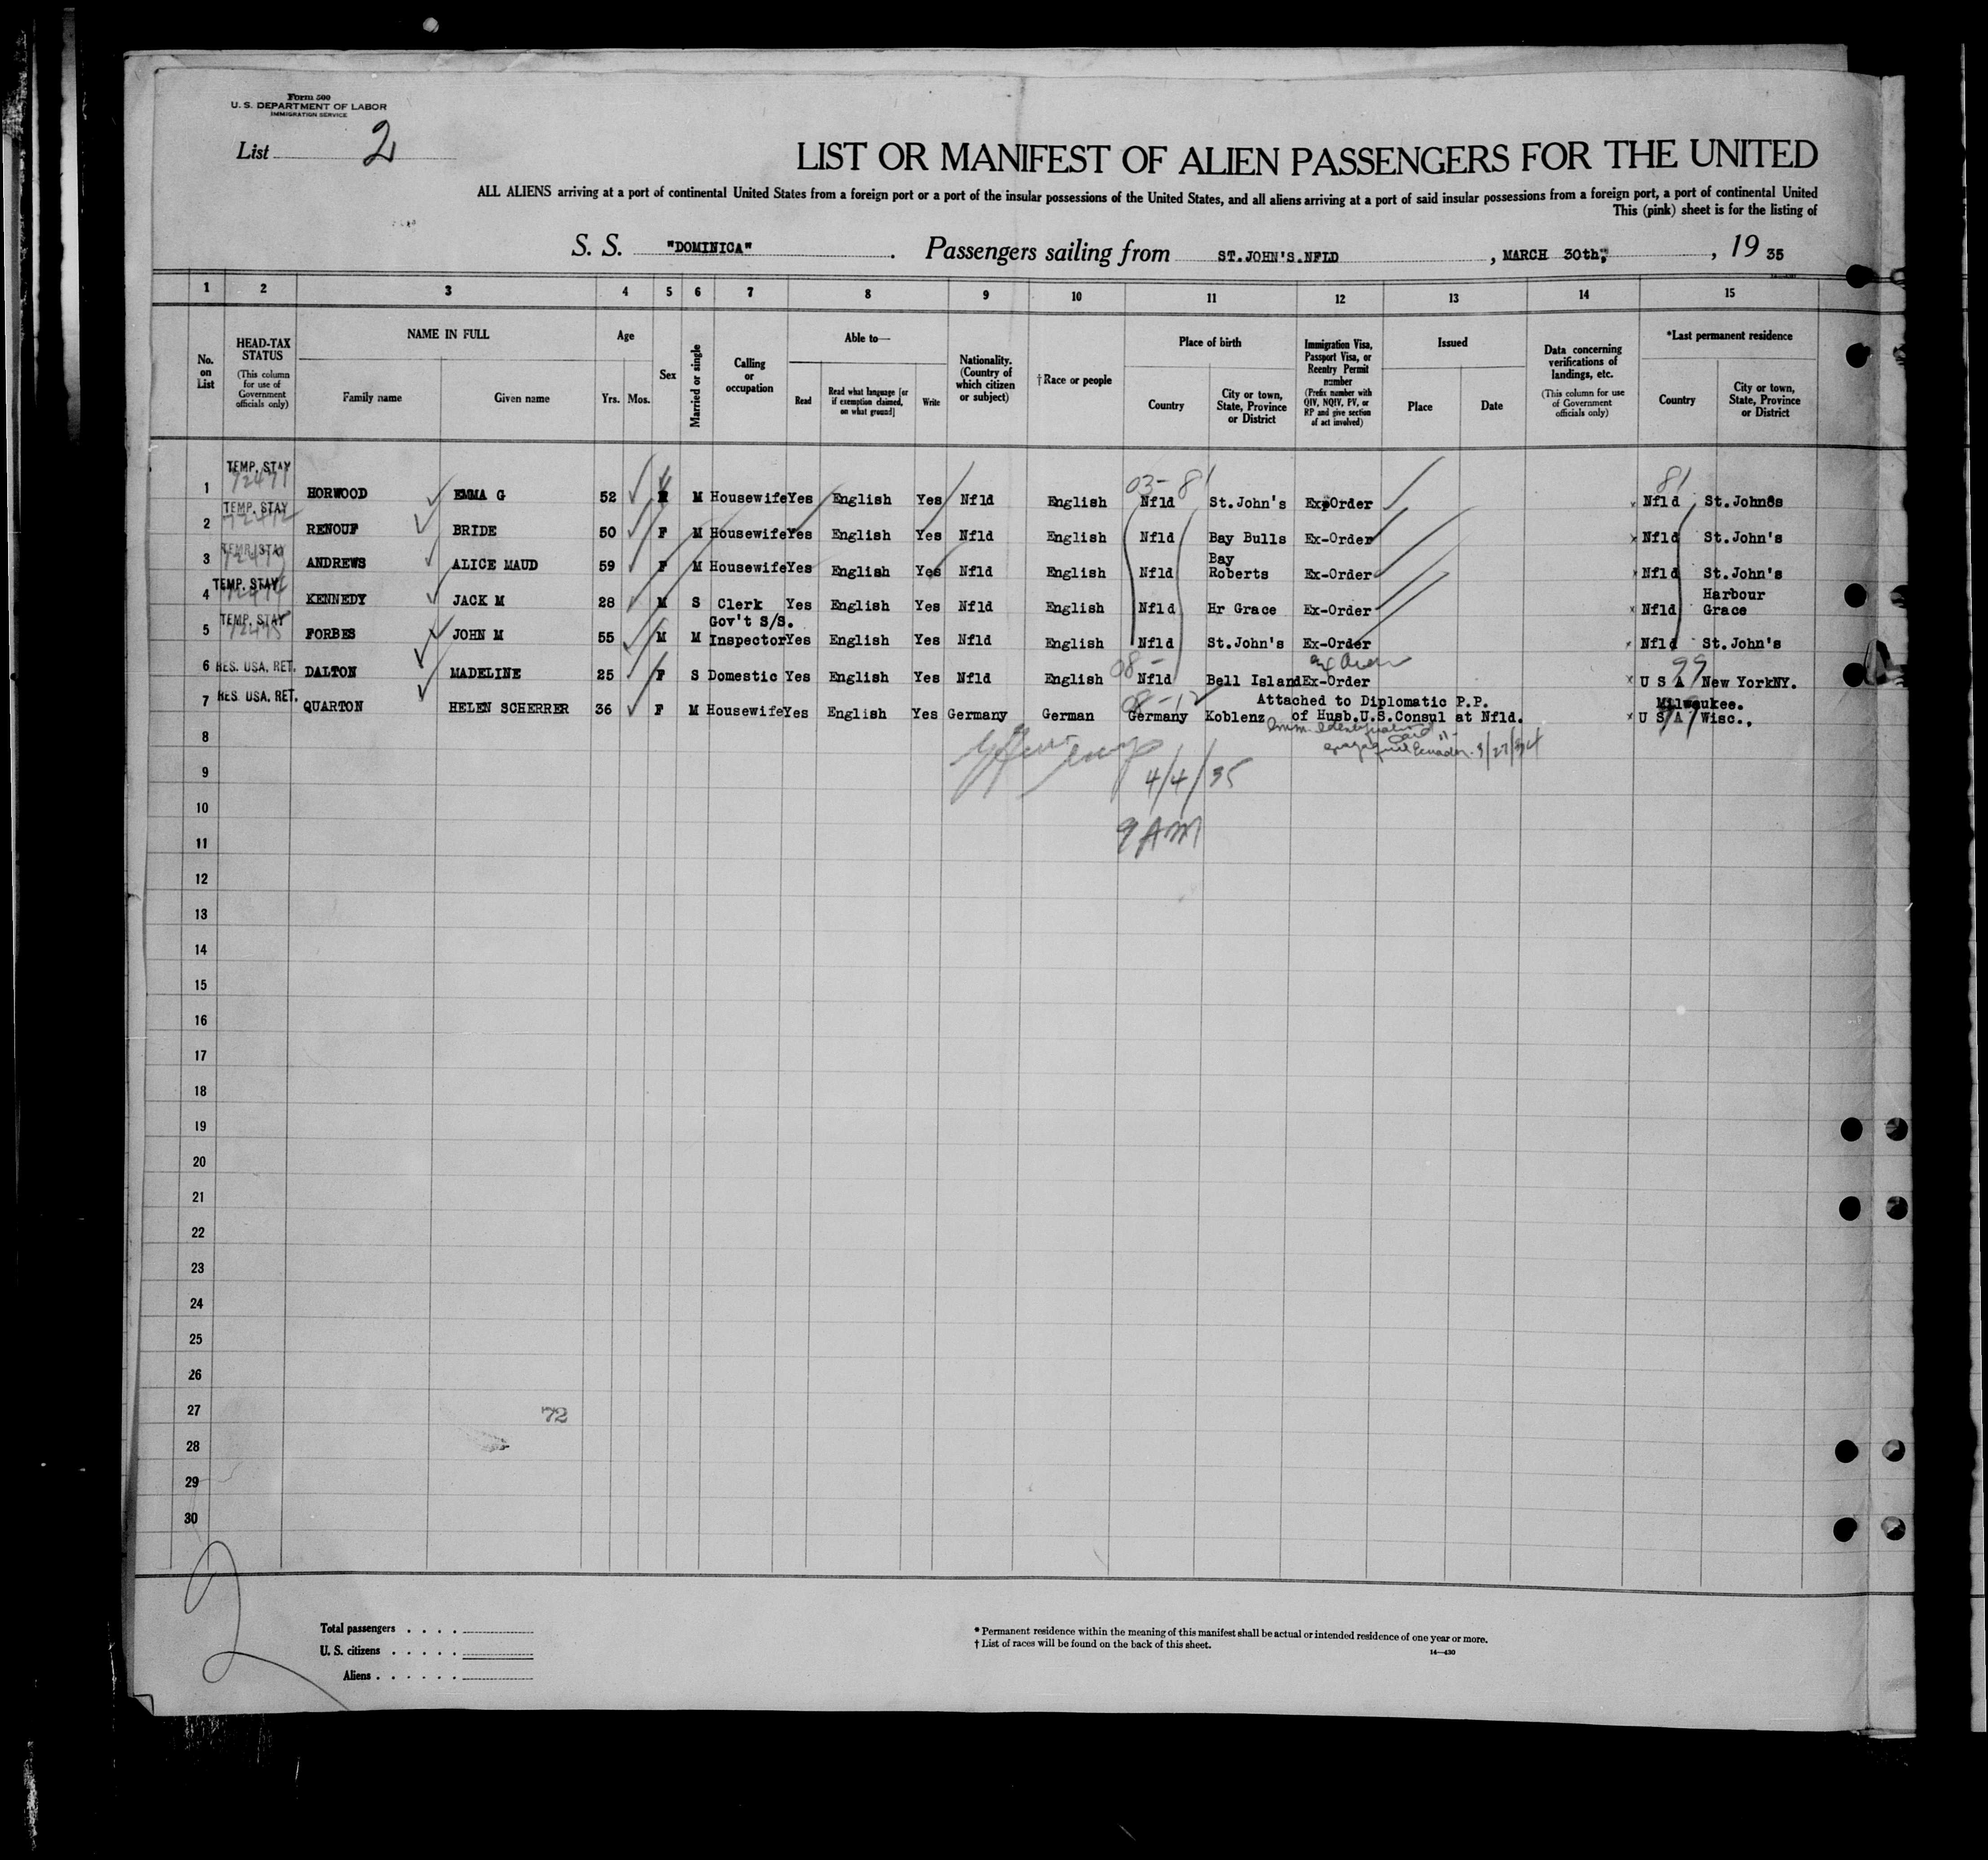 Form 500
U. S. DEPARTMENT OF LABOR
IMMIGRATION SERVICE
List 2
LIST OR MANIFEST OF ALIEN PASSENGERS FOR THE UNITED
ALL ALIENS arriving at a port of continental United States from a foreign port or a port of the insular possessions of the United States, and all aliens arriving at a port of said insular possessions from a foreign port, a port of continental United
This (pink) sheet is for the listing of
S. S. "DOMINICA" . Passengers sailing from ST.JOHN'S.NFLD , MARCH 30th; , 19 35
1 2 3 4 5 6 7 8 9 10 11 12 13 14 15
No. on List
HEAD-TAX STATUS (This column for use of Government officials only)
NAME IN FULL
Family name Given name
Age
Yrs. Mos.
Sex
Married or single
Calling or occupation
Able to—
Read
Read what language [or if exemption claimed, on what ground]
Write
Nationality. (Country of which citizen or subject)
† Race or people
Place of birth
Country
City or town, State, Province or District
Immigration Visa, Passport Visa, or Reentry Permit number (Prefix number with QIV, NQIV, PV, or RP and give section of act involved)
Issued
Place Date
Data concerning verifications of landings, etc. (This column for use of Government officials only)
*Last permanent residence
Country
City or town, State, Province or District
03- 81 81
1 TEMP. STAY HORWOOD EMMA G 52 M Housewife Yes English Yes Nfld English Nfld St.John's Ex-Order x Nfld St.Johns
2 TEMP. STAY RENOUF BRIDE 50 F M Housewife Yes English Yes Nfld English Nfld Bay Bulls Ex-Order x Nfld St.John's
3 TEMP. STAY ANDREWS ALICE MAUD 59 F M Housewife Yes English Yes Nfld English Nfld Bay Roberts Ex-Order x Nfld St.John's
4 TEMP. STAY KENNEDY JACK M 28 M S Clerk Yes English Yes Nfld English Nfld Hr Grace Ex-Order x Nfld Harbour Grace
5 TEMP. STAY FORBES JOHN M 55 M M Gov't S/S. Inspector Yes English Yes Nfld English Nfld St.John's Ex-Order x Nfld St.John's
08- 99
6 RES. USA. RET. DALTON MADELINE 25 F S Domestic Yes English Yes Nfld English Nfld Bell Island Ex-Order x U S A New YorkNY.
08-12
7 RES. USA. RET. QUARTON HELEN SCHERRER 36 F M Housewife Yes English Yes Germany German Germany Koblenz Attached to Diplomatic P.P. of Husb.U.S.Consul at Nfld. x U S A Milwaukee. Wisc.,
8
9
4/4/35
10
9 AM
11
12
13
14
15
16
17
18
19
20
21
22
23
24
25
26
27
72
28
29
30
2
Total passengers . . . .
U. S. citizens . . . . .
Aliens . . . . . .
* Permanent residence within the meaning of this manifest shall be actual or intended residence of one year or more.
† List of races will be found on the back of this sheet.
14—430